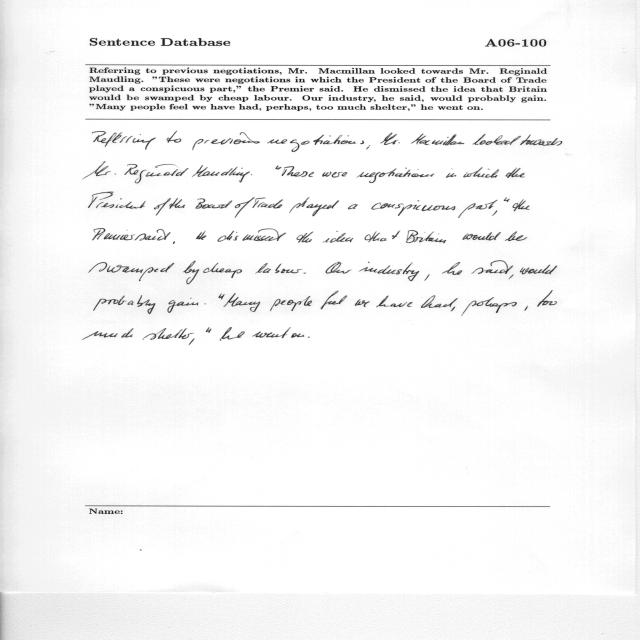 Sentence Database A06-100
Referring to previous negotiations, Mr. Macmillan looked towards Mr. Reginald
Maudling. "These were negotiations in which the President of the Board of Trade
played a conspicuous part," the Premier said. He dismissed the idea that Britain
would be swamped by cheap labour. Our industry, he said, would probably gain.
"Many people feel we have had, perhaps, too much shelter," he went on.
Referring to previous negotiations, Mr. Macmillan looked towards
Mr. Reginald Maudling. "These were negotiations in which the
President of the Board of Trade played a conspicuous part," the
Premier said. He dismissed the idea that Britain would be
swamped by cheap labour. Our industry, he said, would
probably gain. "Many people feel we have had, perhaps, too
much shelter," he went on.
Name: